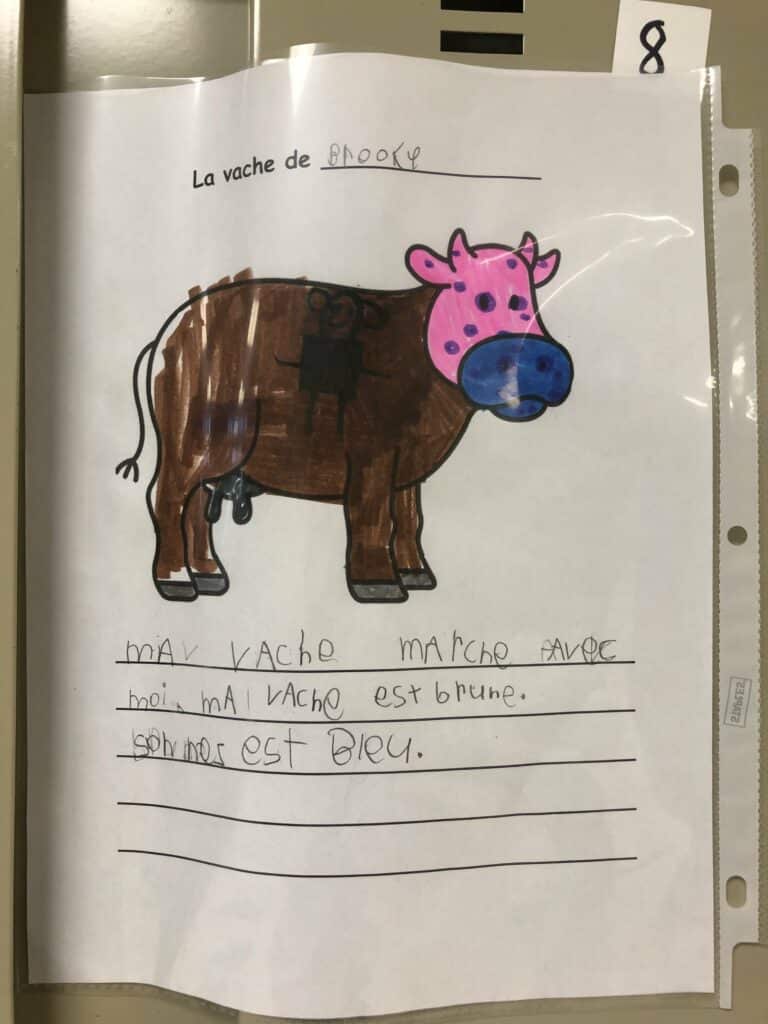 8
La vache de Brooky
mA vAche mArche Avec
moi. mA vAche est brune.
son nes est Bleu.
STAPLES